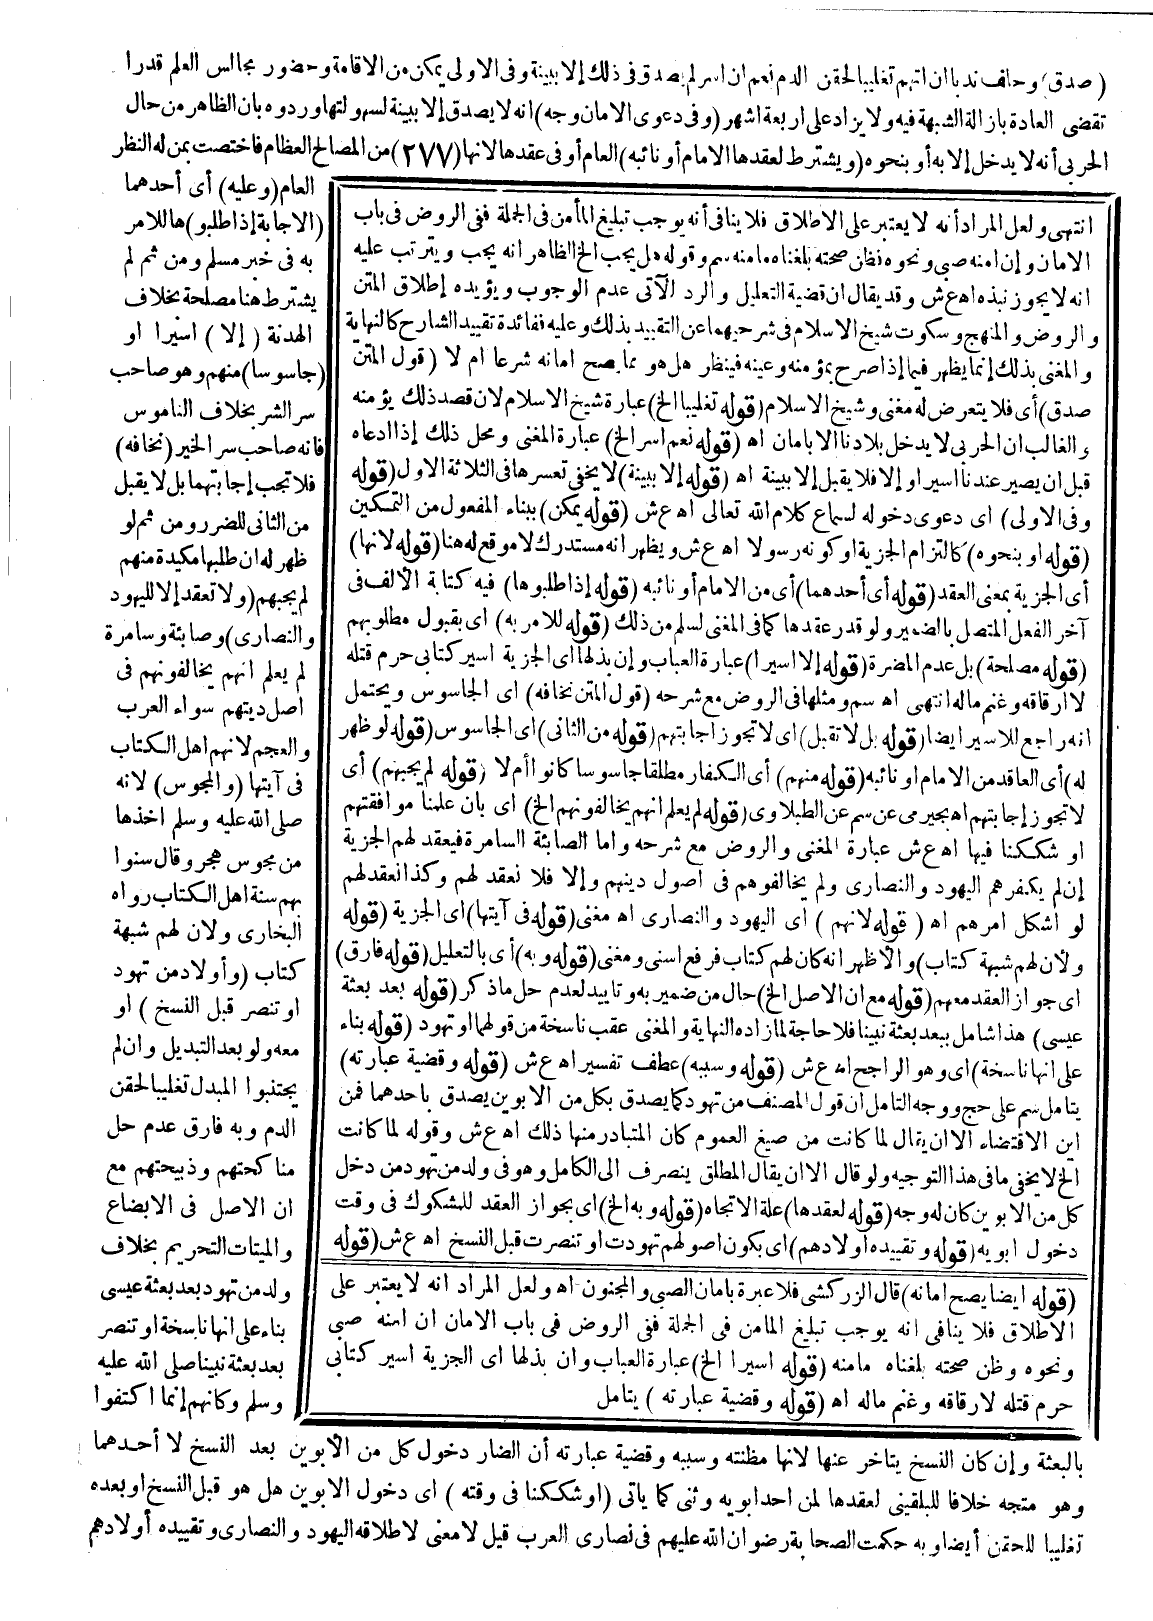 (صدق) وحلف ندبا ان اتهم تغليبا لحقن الدم نعم ان اسر لم يصدق فى ذلك إلا ببينة وفى الاولى يمكن من الاقامة وحضور مجالس العلم قدرا
تقضى العادة بازالة الشبهة فيه ولا يزاد على اربعة اشهر (وفى دعوى الامان وجه) انه لا يصدق إلا ببينة لسهولتها وردوه بان الظاهر من حال
الحربى أنه لا يدخل إلا به أو بنحوه (ويشترط لعقدها الامام أو نائبه) العام أو فى عقدها لانها (٢٧٧) من المصالح العظام فاختصت بمن له النظر
العام (وعليه) أى أحدهما
(الاجابة إذا طلبوا) ها للامر
به فى خبر مسلم ومن ثم لم
يشترط هنا مصلحة بخلاف
الهدنة (إلا) اسيرا او
(جاسوسا) منهم وهو صاحب
سر الشر بخلاف الناموس
فانه صاحب سر الخير (نخافه)
فلا تجب إجابتهما بل لا يقبل
من الثانى للضرر ومن ثم لو
ظهر له ان طلبها مكيدة منهم
لم يجبهم (ولا تعقد إلا لليهود
والنصارى) وصابئة وسامرة
لم يعلم انهم يخالفونهم فى
اصل ديتهم سواء العرب
والعجم لانهم اهل الكتاب
فى آيتها (والمجوس) لانه
صلى الله عليه وسلم اخذها
من مجوس هجر وقال سنوا
بهم سنة اهل الكتاب رواه
البخارى ولان لهم شبهة
كتاب (وأولاد من تهود
او تنصر قبل النسخ) او
معه ولو بعد التبديل وان لم
يجتنبوا المبدل تغليبا لحقن
الدم وبه فارق عدم حل
مناكحتهم وذبيحتهم مع
ان الاصل فى الابضاع
والميتات التحريم بخلاف
ولد من تهود بعد بعثة عيسى
بناء على انها ناسخة او تنصر
بعد بعثة نبينا صلى الله عليه
وسلم وكانهم إنما اكتفوا
بالبعثة وإن كان النسخ يتاخر عنها لانها مظنته وسببه وقضية عبارته أن الضار دخول كل من الابوين بعد النسخ لا أحدهما
وهو متجه خلافا للبلقينى لعقدها لمن احد ابويه وثنى كما ياتى (او شككنا فى وقته) اى دخول الابوين هل هو قبل النسخ او بعده
تغليبا للحقن أيضا وبه حكمت الصحابة رضوان الله عليهم فى نصارى العرب قيل لا معنى لاطلاقه اليهود والنصارى وتقييده أولادهم
انتهى ولعل المراد أنه لا يعتبر على الاطلاق فلا ينافى أنه يوجب تبليغ المأمن فى الجملة ففى الروض فى باب
الامان وإن امنه صبى ونحوه فظن صحته بلغناه مامنه سم وقوله هل يجب الخ الظاهر انه يجب ويترتب عليه
انه لا يجوز نبذه اه ع ش وقد يقال ان قضية التعليل والرد الآتى عدم الوجوب ويؤيده إطلاق المتن
والروض والمنهج وسكوت شيخ الاسلام فى شرحيهما عن التقييد بذلك وعليه ففائدة تقييد الشارح كالنهاية
والمغنى بذلك إنما يظهر فيما إذا صرح بمؤمنه وعينه فينظر هل هو مما يصح امانه شرعا ام لا (قول المتن
صدق) أى فلا يتعرض له مغنى وشيخ الاسلام (قوله تغليبا الخ) عبارة شيخ الاسلام لان قصد ذلك يؤمنه
والغالب ان الحربى لا يدخل بلادنا الا بامان اه (قوله نعم اسر الخ) عبارة المغنى ومحل ذلك إذا ادعاه
قبل ان يصير عندنا أسيرا وإلا فلا يقبل إلا ببينة اه (قوله إلا ببينة) لا يخفى تعسرها فى الثلاثة الاول (قوله
وفى الاولى) اى دعوى دخوله لسماع كلام الله تعالى اه ع ش (قوله يمكن) ببناء المفعول من التمكين
(قوله او بنحوه) كالتزام الجزية او كونه رسولا اه ع ش ويظهر انه مستدرك لا موقع له هنا (قوله لانها)
أى الجزية بمعنى العقد (قوله أى أحدهما) أى من الامام أو نائبه (قوله إذا طلبوها) فيه كتابة الألف فى
آخر الفعل المتصل بالضمير ولو قدر عقدها كما فى المغنى لسلم من ذلك (قوله للامر به) اى بقبول مطلوبهم
(قوله مصلحة) بل عدم المضرة (قوله إلا اسيرا) عبارة العباب وإن بذلها اى الجزية اسير كتابى حرم قتله
لا ارقاقه وغنم ماله انتهى اه سم ومثلها فى الروض مع شرحه (قول المتن نخافه) اى الجاسوس ويحتمل
انه راجع للاسير ايضا (قوله بل لا تقبل) اى لا تجوز اجابتهم (قوله من الثانى) اى الجاسوس (قوله لو ظهر
له) أى العاقد من الامام او نائبه (قوله منهم) أى الكفار مطلقا جاسوسا كانوا أم لا (قوله لم يجبهم) أى
لا تجوز إجابتهم اه بجيرمى عن سم عن الطبلاوى (قوله لم يعلم انهم يخالفونهم الخ) اى بان علمنا موافقتهم
او شككنا فيها اه ع ش عبارة المغنى والروض مع شرحه واما الصابئة السامرة فيعقد لهم الجزية
إن لم يكفرهم اليهود والنصارى ولم يخالفوهم فى اصول دينهم وإلا فلا نعقد لهم وكذا نعقد لهم
لو اشكل امرهم اه (قوله لانهم) اى اليهود والنصارى اه مغنى (قوله فى آيتها) اى الجزية (قوله
ولأن لهم شبهة كتاب) والاظهر انه كان لهم كتاب فرفع اسنى ومغنى (قوله وبه) أى بالتعليل (قوله فارق)
اى جواز العقد معهم (قوله مع ان الاصل الخ) حال من ضمير به وتاييد لعدم حل ما ذكر (قوله بعد بعثة
عيسى) هذا شامل ببعد بعثة نبينا فلا حاجة لما زاده النهاية والمغنى عقب ناسخة من قولهما او تهود (قوله بناء
على انها ناسخة) اى وهو الراجح اه ع ش (قوله وسببه) عطف تفسير اه ع ش (قوله وقضية عبارته)
يتامل سم على حج ووجه التامل ان قول المصنف من تهود كما يصدق بكل من الابوين يصدق باحدهما فمن
اين الاقتضاء الا ان يقال لما كانت من صيغ العموم كان المتبادر منها ذلك اه ع ش وقوله لما كانت
الخ لا يخفى ما فى هذا التوجيه ولو قال الا ان يقال المطلق ينصرف الى الكامل وهو فى ولد من تهود من دخل
كل من الابوين كان له وجه (قوله لعقدها) علة الاتجاه (قوله وبه الخ) اى بجواز العقد للمشكوك فى وقت
دخول ابويه (قوله وتقييده اولادهم) اى بكون اصولهم تهودت او تنصرت قبل النسخ اه ع ش (قوله
(قوله ايضا يصح امانه) قال الزركشى فلا عبرة بامان الصبى والمجنون اه ولعل المراد انه لا يعتبر على
الاطلاق فلا ينافى انه يوجب تبليغ المامن فى الجملة ففى الروض فى باب الامان ان امنه صبى
ونحوه وظن صحته بلغناه مامنه (قوله اسيرا الخ) عبارة العباب وان بذلها اى الجزية اسير كتابى
حرم قتله لا رقاقه وغنم ماله اه (قوله وقضية عبارته) يتامل